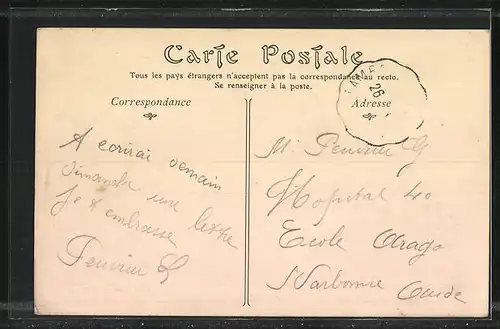 Carte Postale
Tous les pays étrangers n'acceptent pas la correspondance au recto.
Se renseigner à la poste.
Correspondance
Adresse
26
A ecrirai demain
Dimanche une lettre
Je t embrasse
Pouvrier G
M. Pouvrier G
Hopital 40
Ecole Arago
Narbonne
Aude